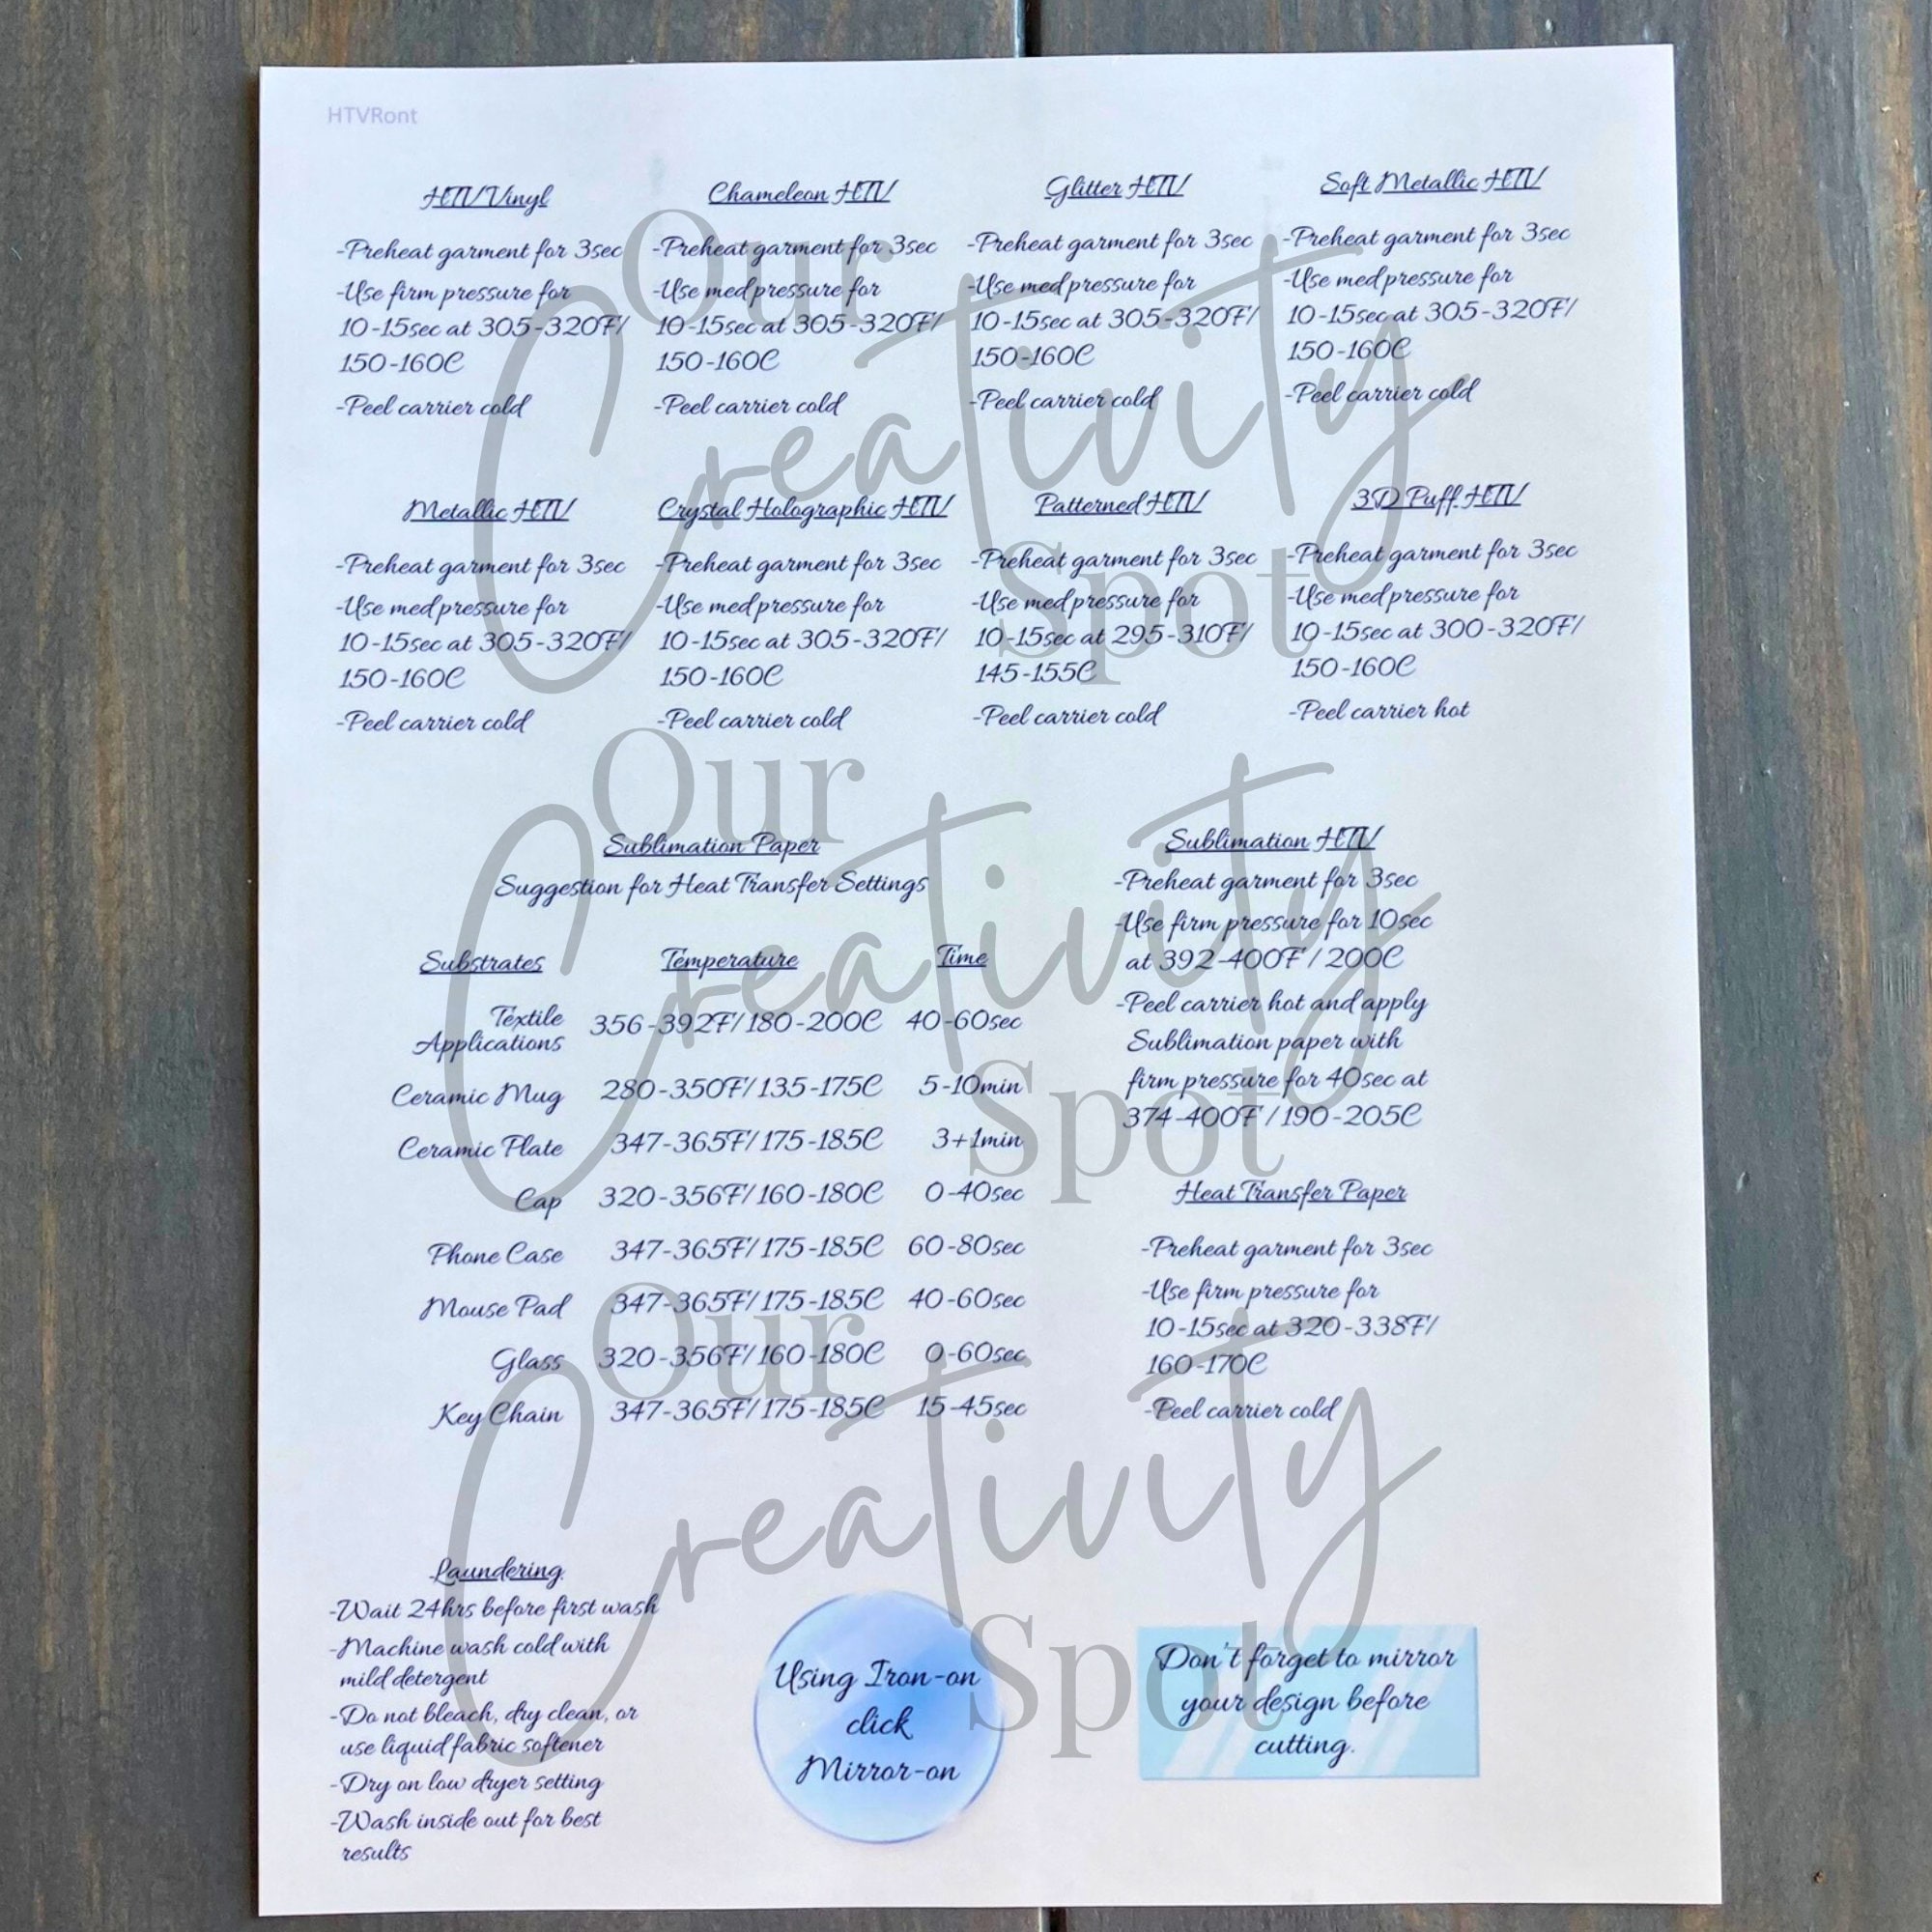 HTVRont
HTV Vinyl
-Preheat garment for 3sec
-Use firm pressure for
10-15sec at 305-320F/
150-160C
-Peel carrier cold
Chameleon HTV
-Preheat garment for 3sec
-Use med pressure for
10-15sec at 305-320F/
150-160C
-Peel carrier cold
Glitter HTV
-Preheat garment for 3sec
-Use med pressure for
10-15sec at 305-320F/
150-160C
-Peel carrier cold
Soft Metallic HTV
-Preheat garment for 3sec
-Use med pressure for
10-15sec at 305-320F/
150-160C
-Peel carrier cold
Metallic HTV
-Preheat garment for 3sec
-Use med pressure for
10-15sec at 305-320F/
150-160C
-Peel carrier cold
Crystal Holographic HTV
-Preheat garment for 3sec
-Use med pressure for
10-15sec at 305-320F/
150-160C
-Peel carrier cold
Patterned HTV
-Preheat garment for 3sec
-Use med pressure for
10-15sec at 295-310F/
145-155C
-Peel carrier cold
3D Puff HTV
-Preheat garment for 3sec
-Use med pressure for
10-15sec at 300-320F/
150-160C
-Peel carrier hot
Sublimation Paper
Suggestion for Heat Transfer Settings
Substrates Temperature Time
Textile
Applications 356-392F/180-200C 40-60sec
Ceramic Mug 280-350F/135-175C 5-10min
Ceramic Plate 347-365F/175-185C 3+1min
Cap 320-356F/160-180C 0-40sec
Phone Case 347-365F/175-185C 60-80sec
Mouse Pad 347-365F/175-185C 40-60sec
Glass 320-356F/160-180C 0-60sec
Key Chain 347-365F/175-185C 15-45sec
Sublimation HTV
-Preheat garment for 3sec
-Use firm pressure for 10sec
at 392-400F / 200C
-Peel carrier hot and apply
Sublimation paper with
firm pressure for 40sec at
374-400F / 190-205C
Heat Transfer Paper
-Preheat garment for 3sec
-Use firm pressure for
10-15sec at 320-338F/
160-170C
-Peel carrier cold
Laundering
-Wait 24hrs before first wash
-Machine wash cold with
mild detergent
-Do not bleach, dry clean, or
use liquid fabric softener
-Dry on low dryer setting
-Wash inside out for best
results
Using Iron-on
click
Mirror-on
Don't forget to mirror
your design before
cutting.
Our
Creativity
Spot
Our
Creativity
Spot
Our
Creativity
Spot